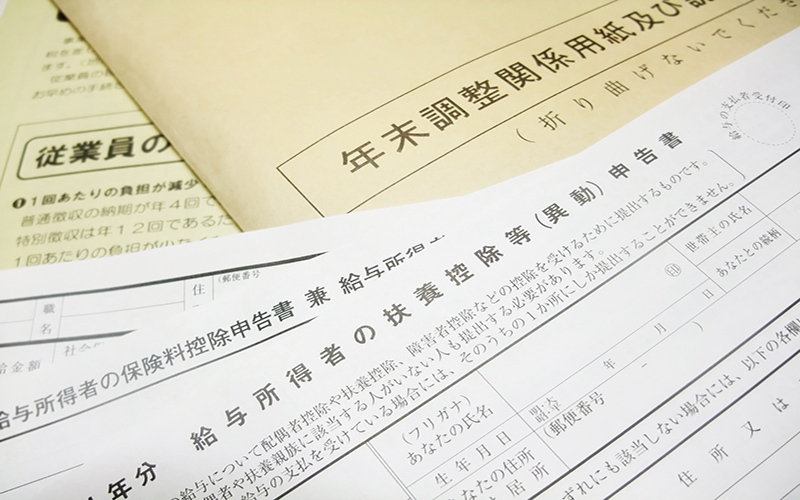 年末調整関係用紙及び
(折り曲げないでくださ
従業員の
❶1回あたりの負担が減少
普通徴収の納期が年4回で
特別徴収は年12回であるた
1回あたりの負担が小さく
給与の支払者受付印
職名
住
(郵便番号
給金額
給与所得者の保険料控除申告書 兼 給与所得
年分 給与所得者の扶養控除等(異動)申告書
の給与について配偶者控除や扶養控除、障害者控除などの控除を受けるために提出するものです。
偶者や扶養親族に該当する人がいない人も提出する必要があります。
給与の支払を受けている場合には、そのうちの1か所にしか提出することができません。
(フリガナ)
あなたの氏名
印
世帯主の氏名
生年月日
年 月 日
あなたとの続柄
あなたの住所
居所
(郵便番号 - )
ずれにも該当しない場合には、以下の各欄
住所又は